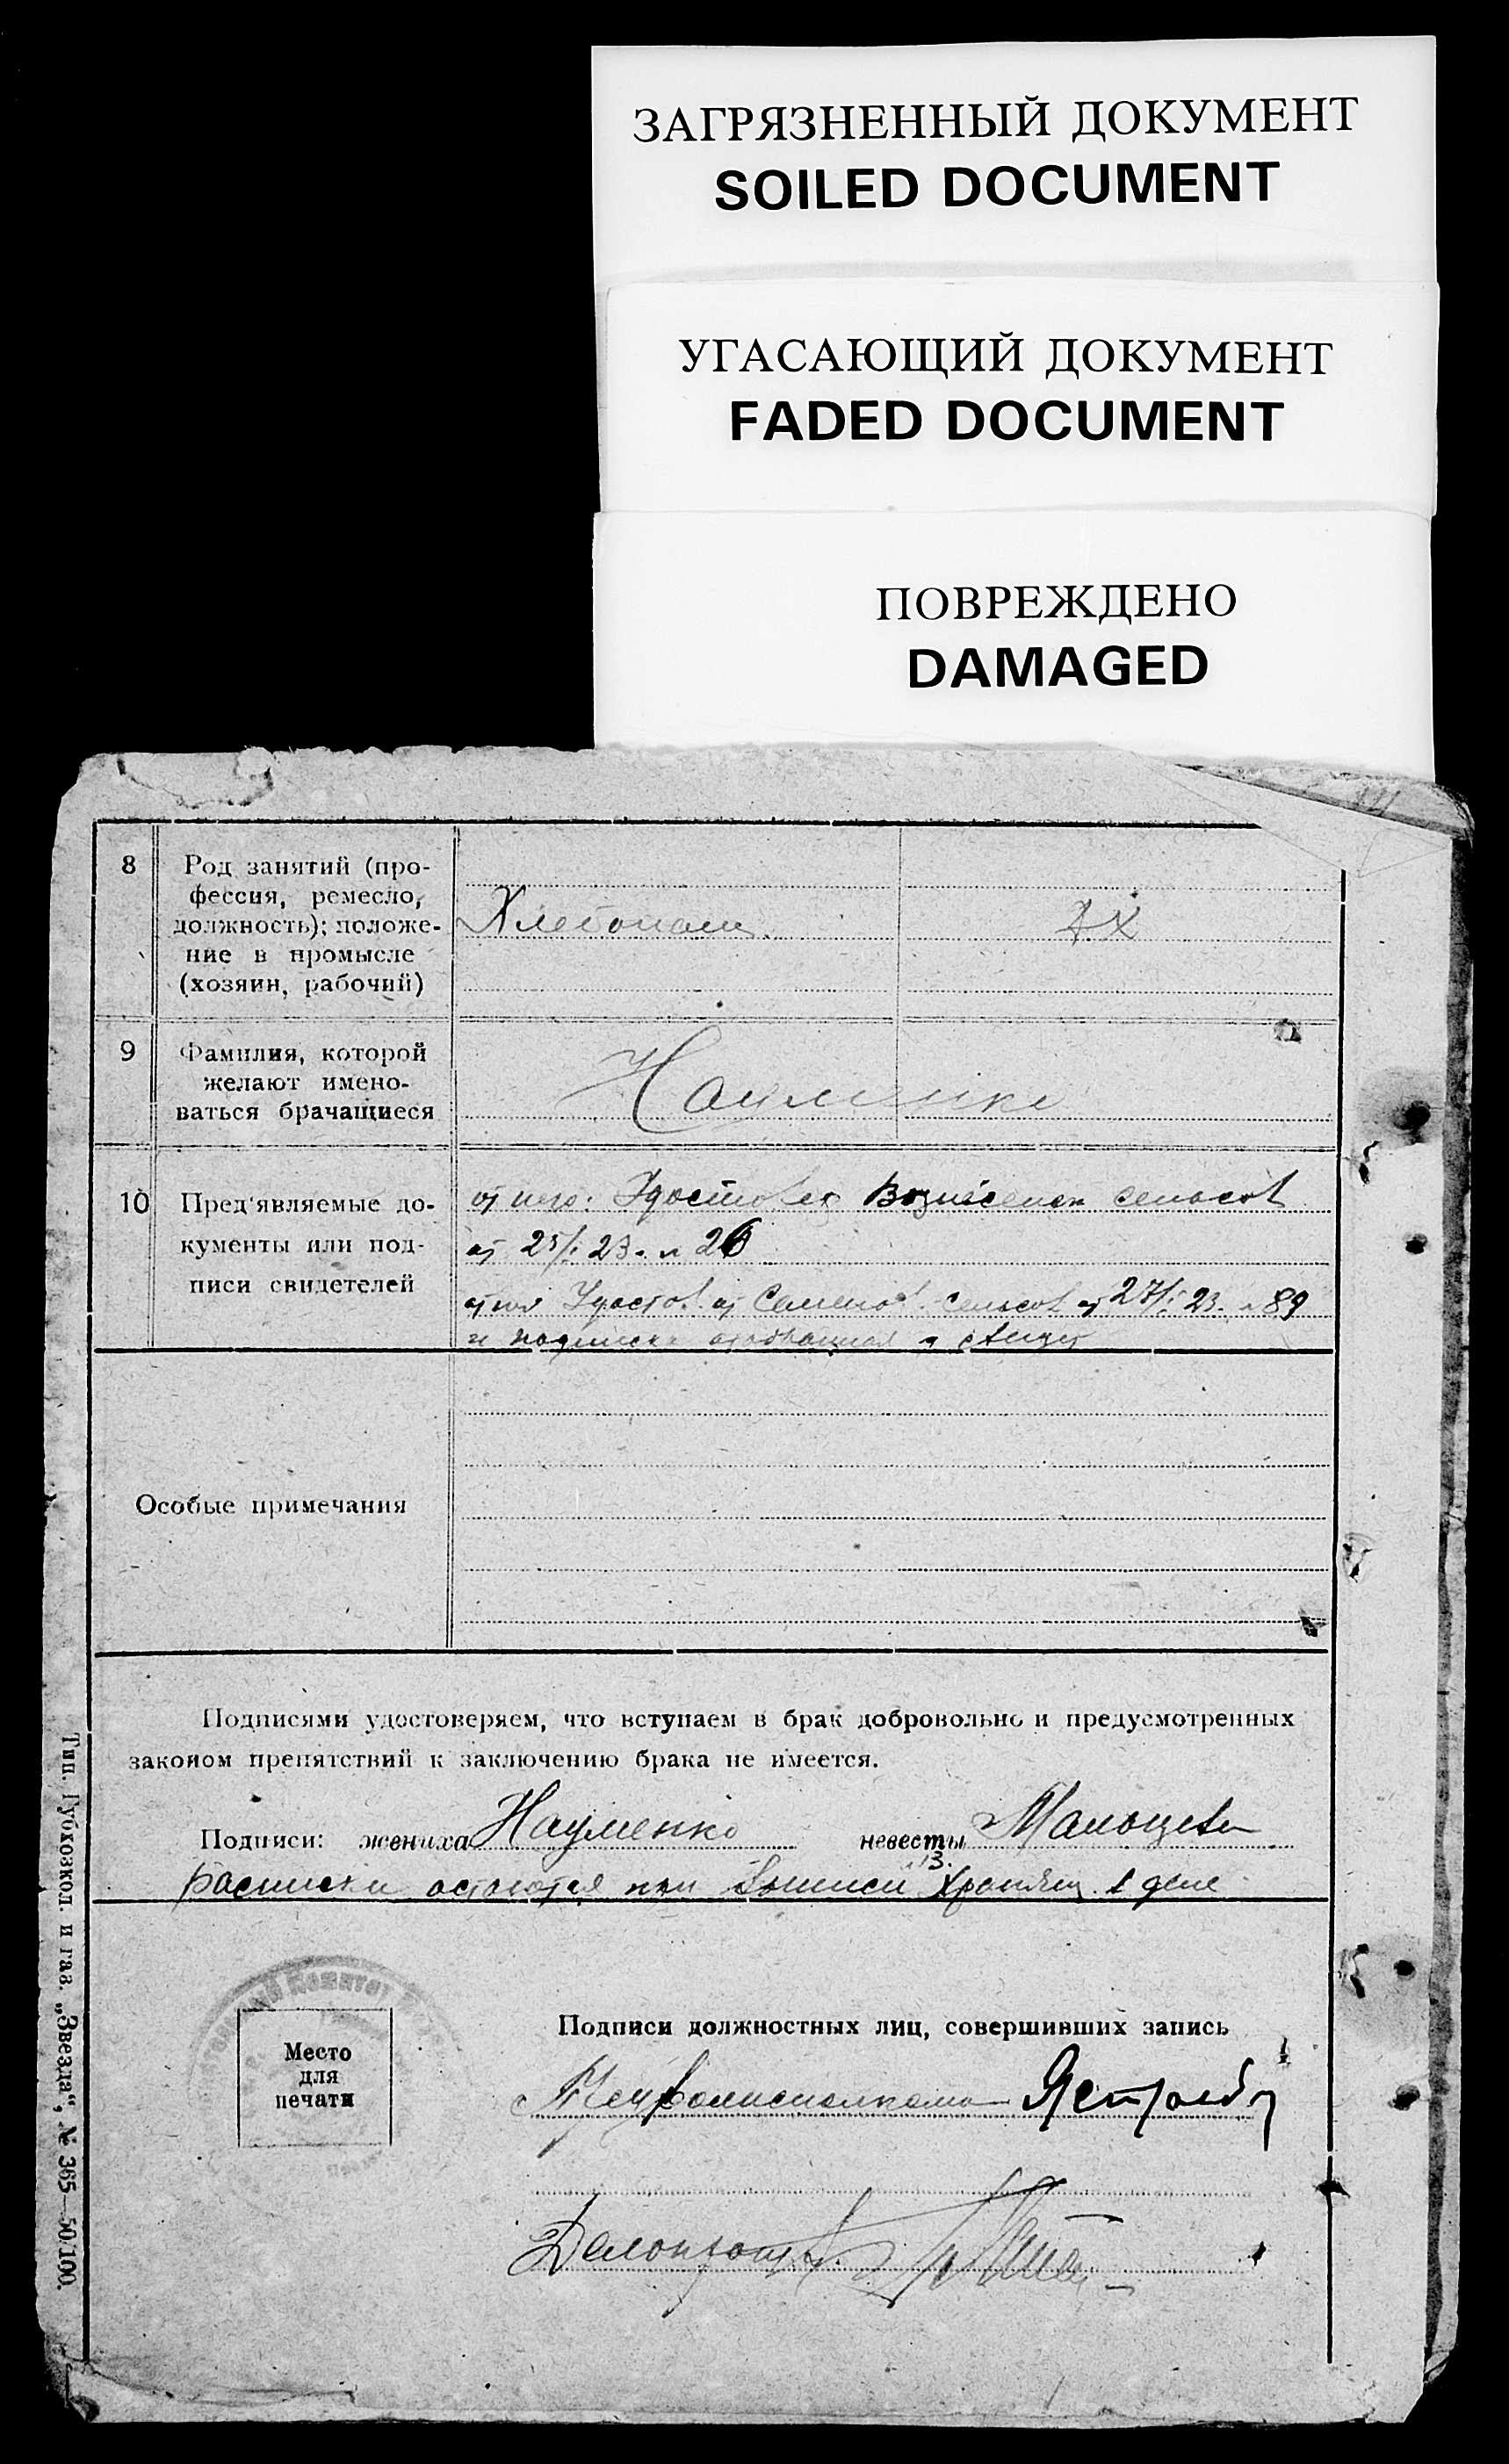 ЗАГРЯЗНЕННЫЙ ДОКУМЕНТ
SOILED DOCUMENT
УГАСАЮЩИЙ ДОКУМЕНТ
FADED DOCUMENT
ПОВРЕЖДЕНО
DAMAGED
8
Род занятий (про-
фессия, ремесло,
должность); положе-
ние в промысле
(хозяин, рабочий)
Хлебопаш.
9
Фамилия, которой
желают имено-
ваться брачащиеся
Науменко
10
Пред'являемые до-
кументы или под-
писи свидетелей
от него: Удостовер Вознесенск сельсов
от 25/I 23. № 26
от нея Удостов. от Семенов. Сельсов от 27/I 23. № 89
и подписка
Особые примечания
Подписями удостоверяем, что вступаем в брак добровольно и предусмотренных
законом препятствий к заключению брака не имеется.
Подписи: жениха Науменко невесты Мальцева
Расписки остаются при выписи хранящ. в деле
Место
для
печати
Подписи должностных лиц, совершивших запись
Пред волисполкома
Делопроизв.
Тип. Губхозкол. и газ. „Звезда“, № 365—50/100.